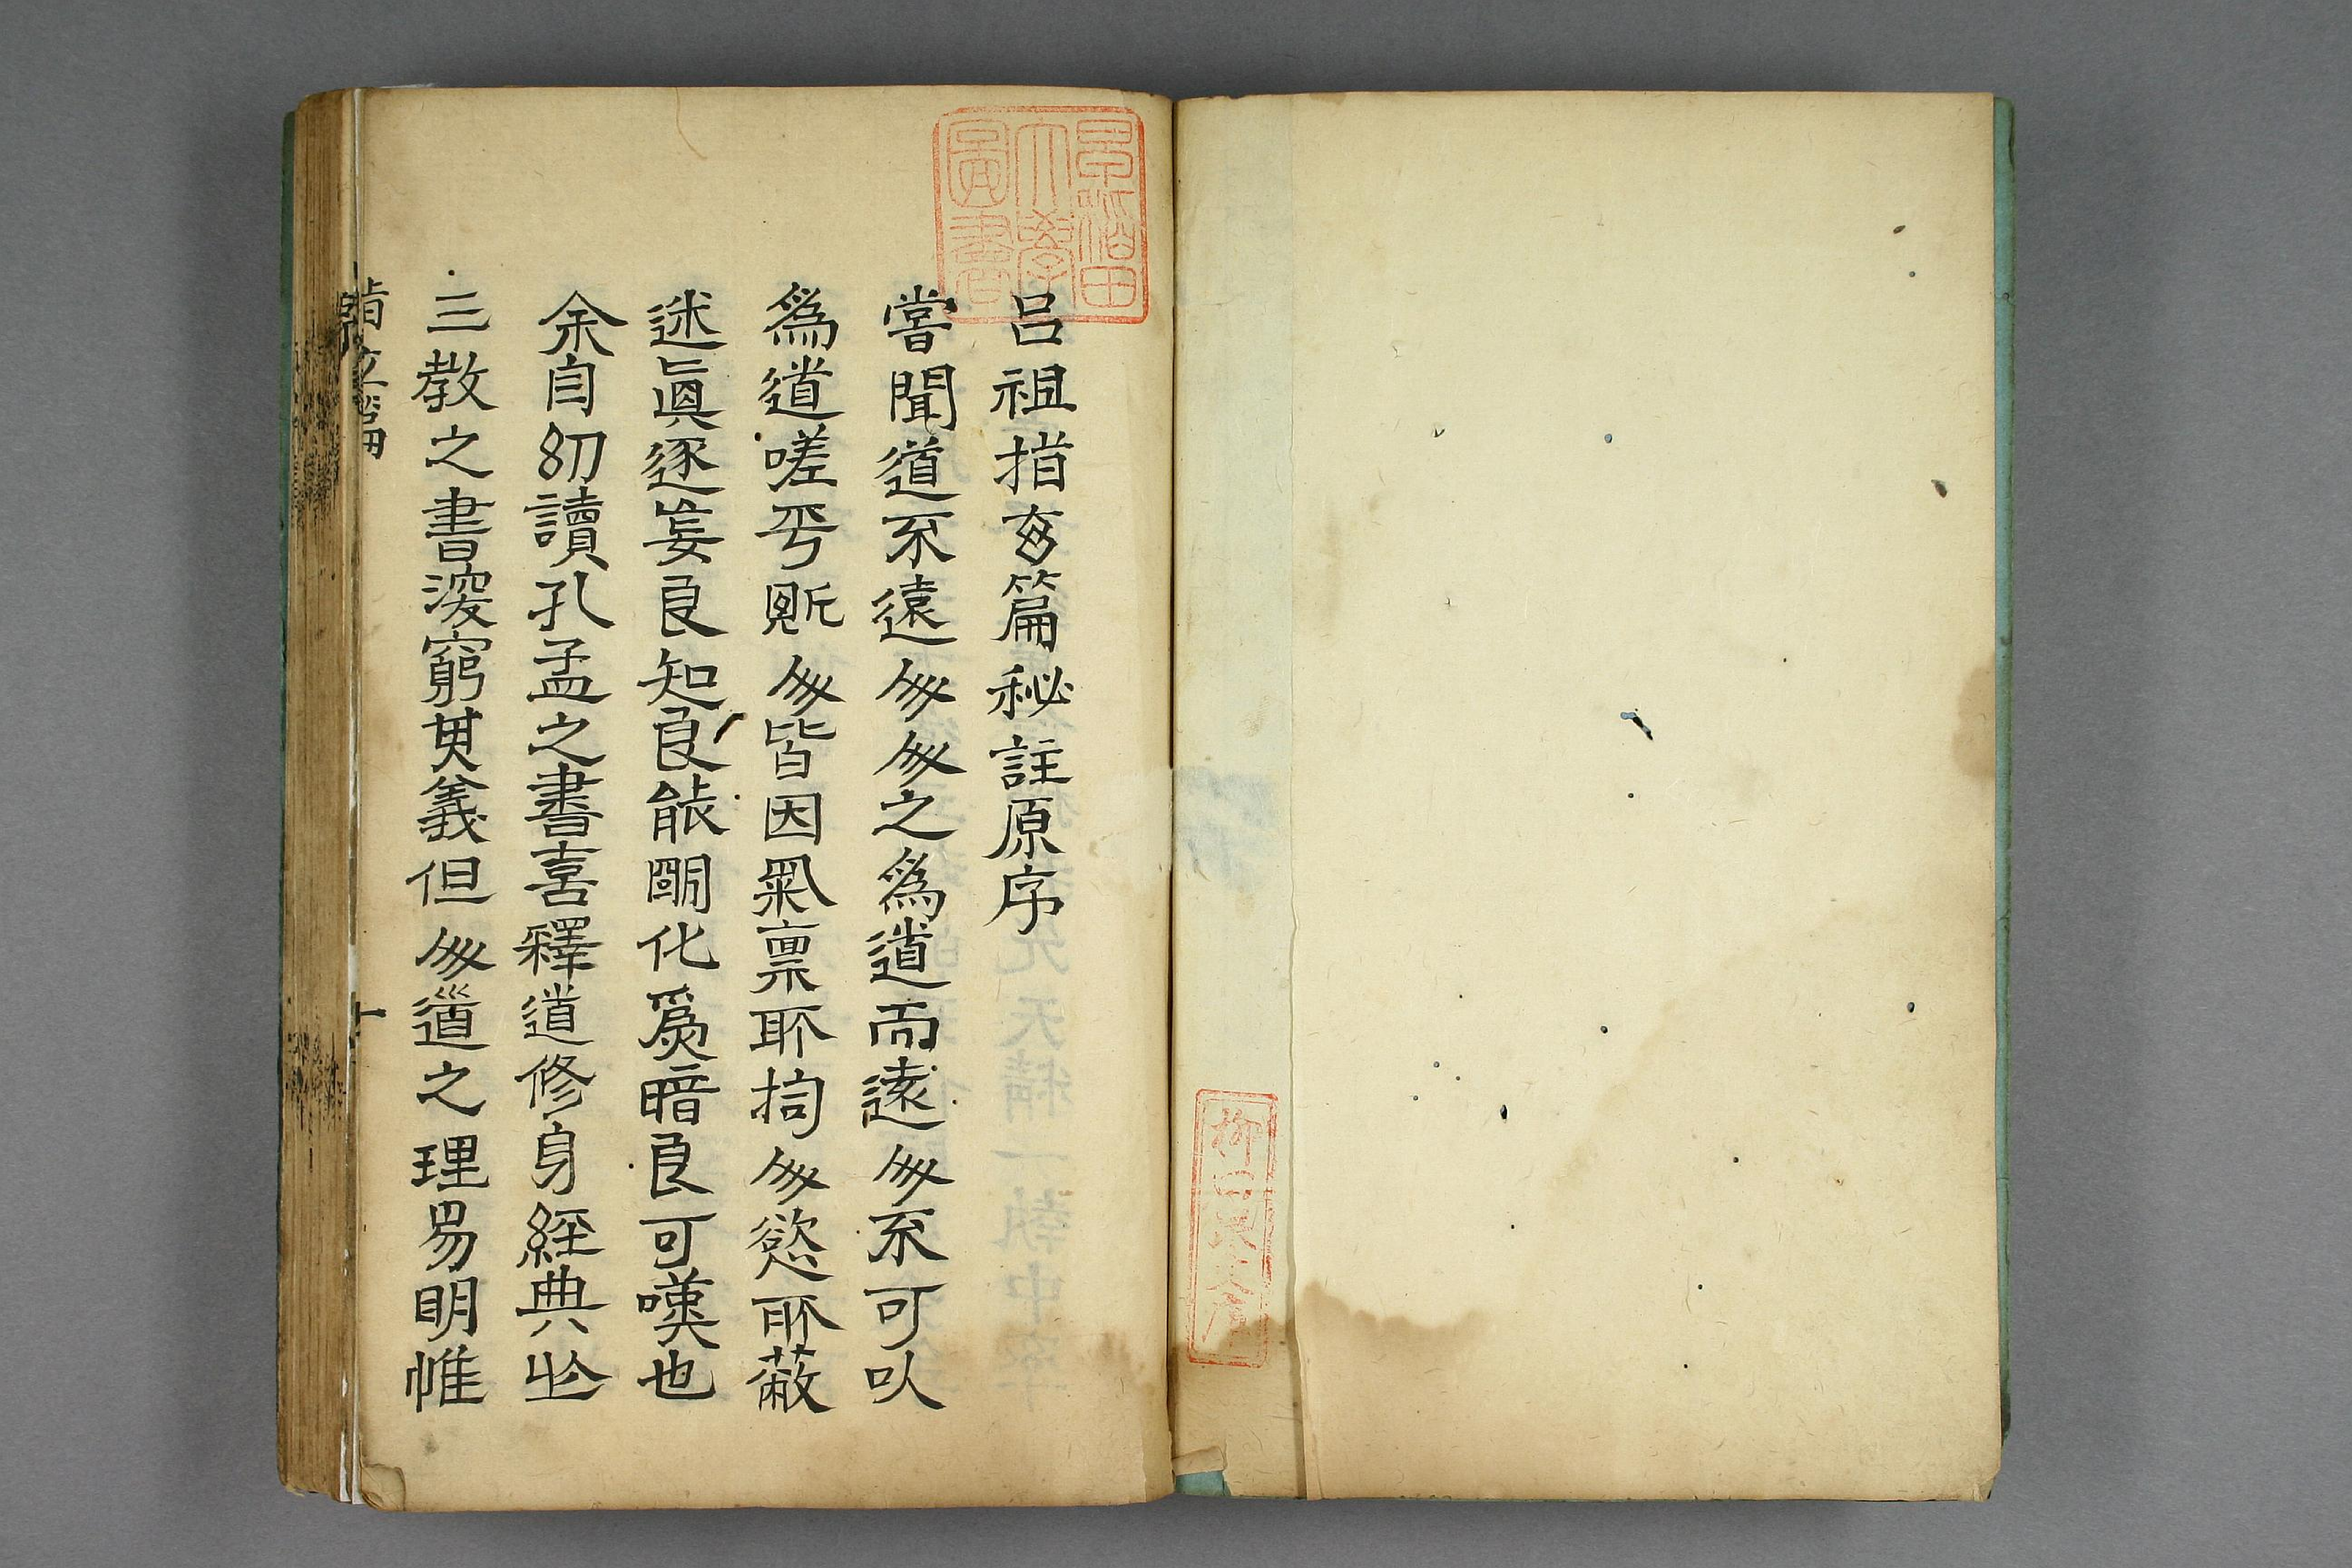 早稲田大學圖書
呂祖指玄篇秘註原序
嘗聞道不遠人人之爲道而遠人不可以
爲道嗟乎貺人皆因氣禀所拘人慾所蔽
迷眞逐妄良知良能罔化爲暗良可嘆也
余自幼讀孔孟之書喜釋道修身經典些
三教之書深窮其義但人道之理易明惟